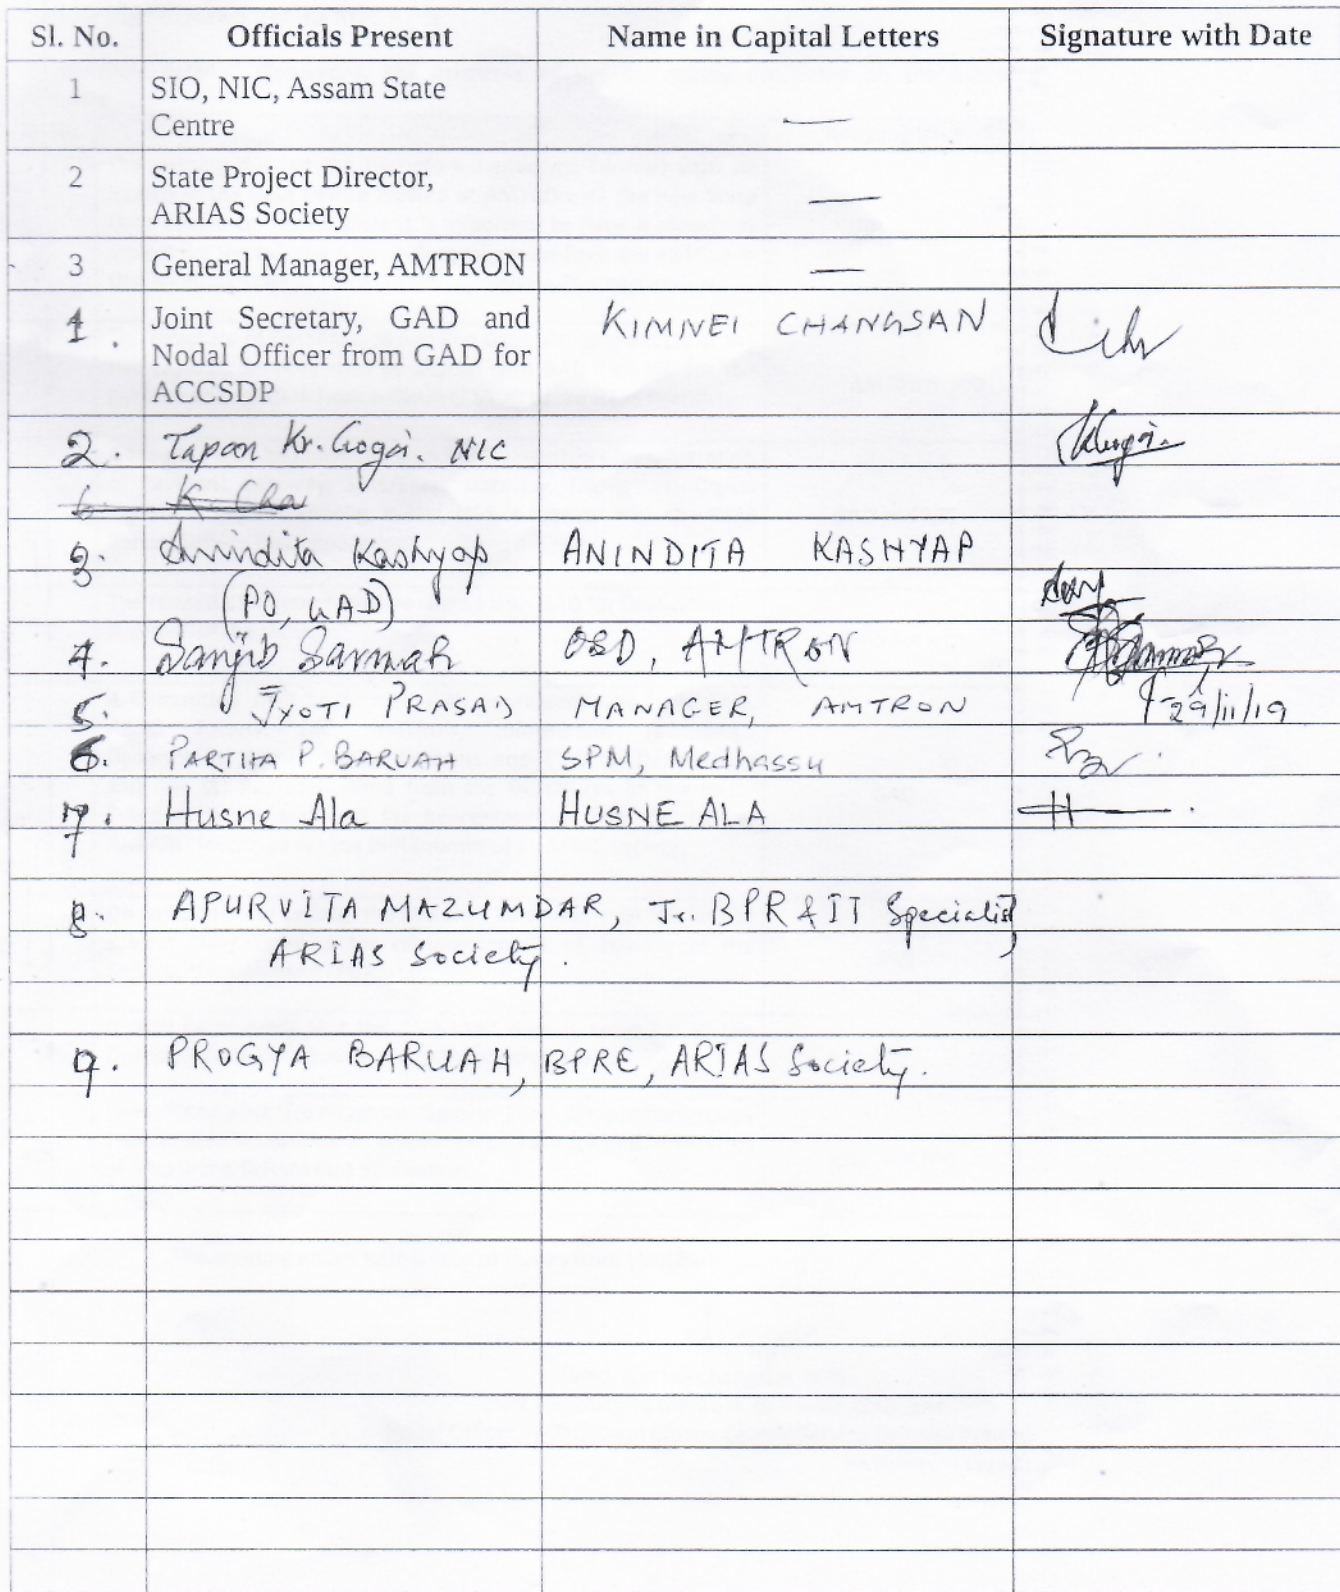 Sl. No. Officials Present Name in Capital Letters Signature with Date
1 SIO, NIC, Assam State
Centre —
2 State Project Director,
ARIAS Society —
3 General Manager, AMTRON —
1. Joint Secretary, GAD and KIMNEI CHANGSAN
Nodal Officer from GAD for
ACCSDP
2. Tapan Kr. Gogoi. NIC
6. K. Cha
3. Anindita Kashyap ANINDITA KASHYAP
(PO, GAD)
4. Sanjib Sarmah OSD, AMTRON
5. JYOTI PRASAD MANAGER, AMTRON 29/11/19
6. PARTHA P. BARUAH SPM, Medhassu
7. Husne Ala HUSNE ALA
8. APURVITA MAZUMDAR, Jr. BPR & IT Specialist,
ARIAS Society.
9. PROGYA BARUAH, BPRE, ARIAS Society.